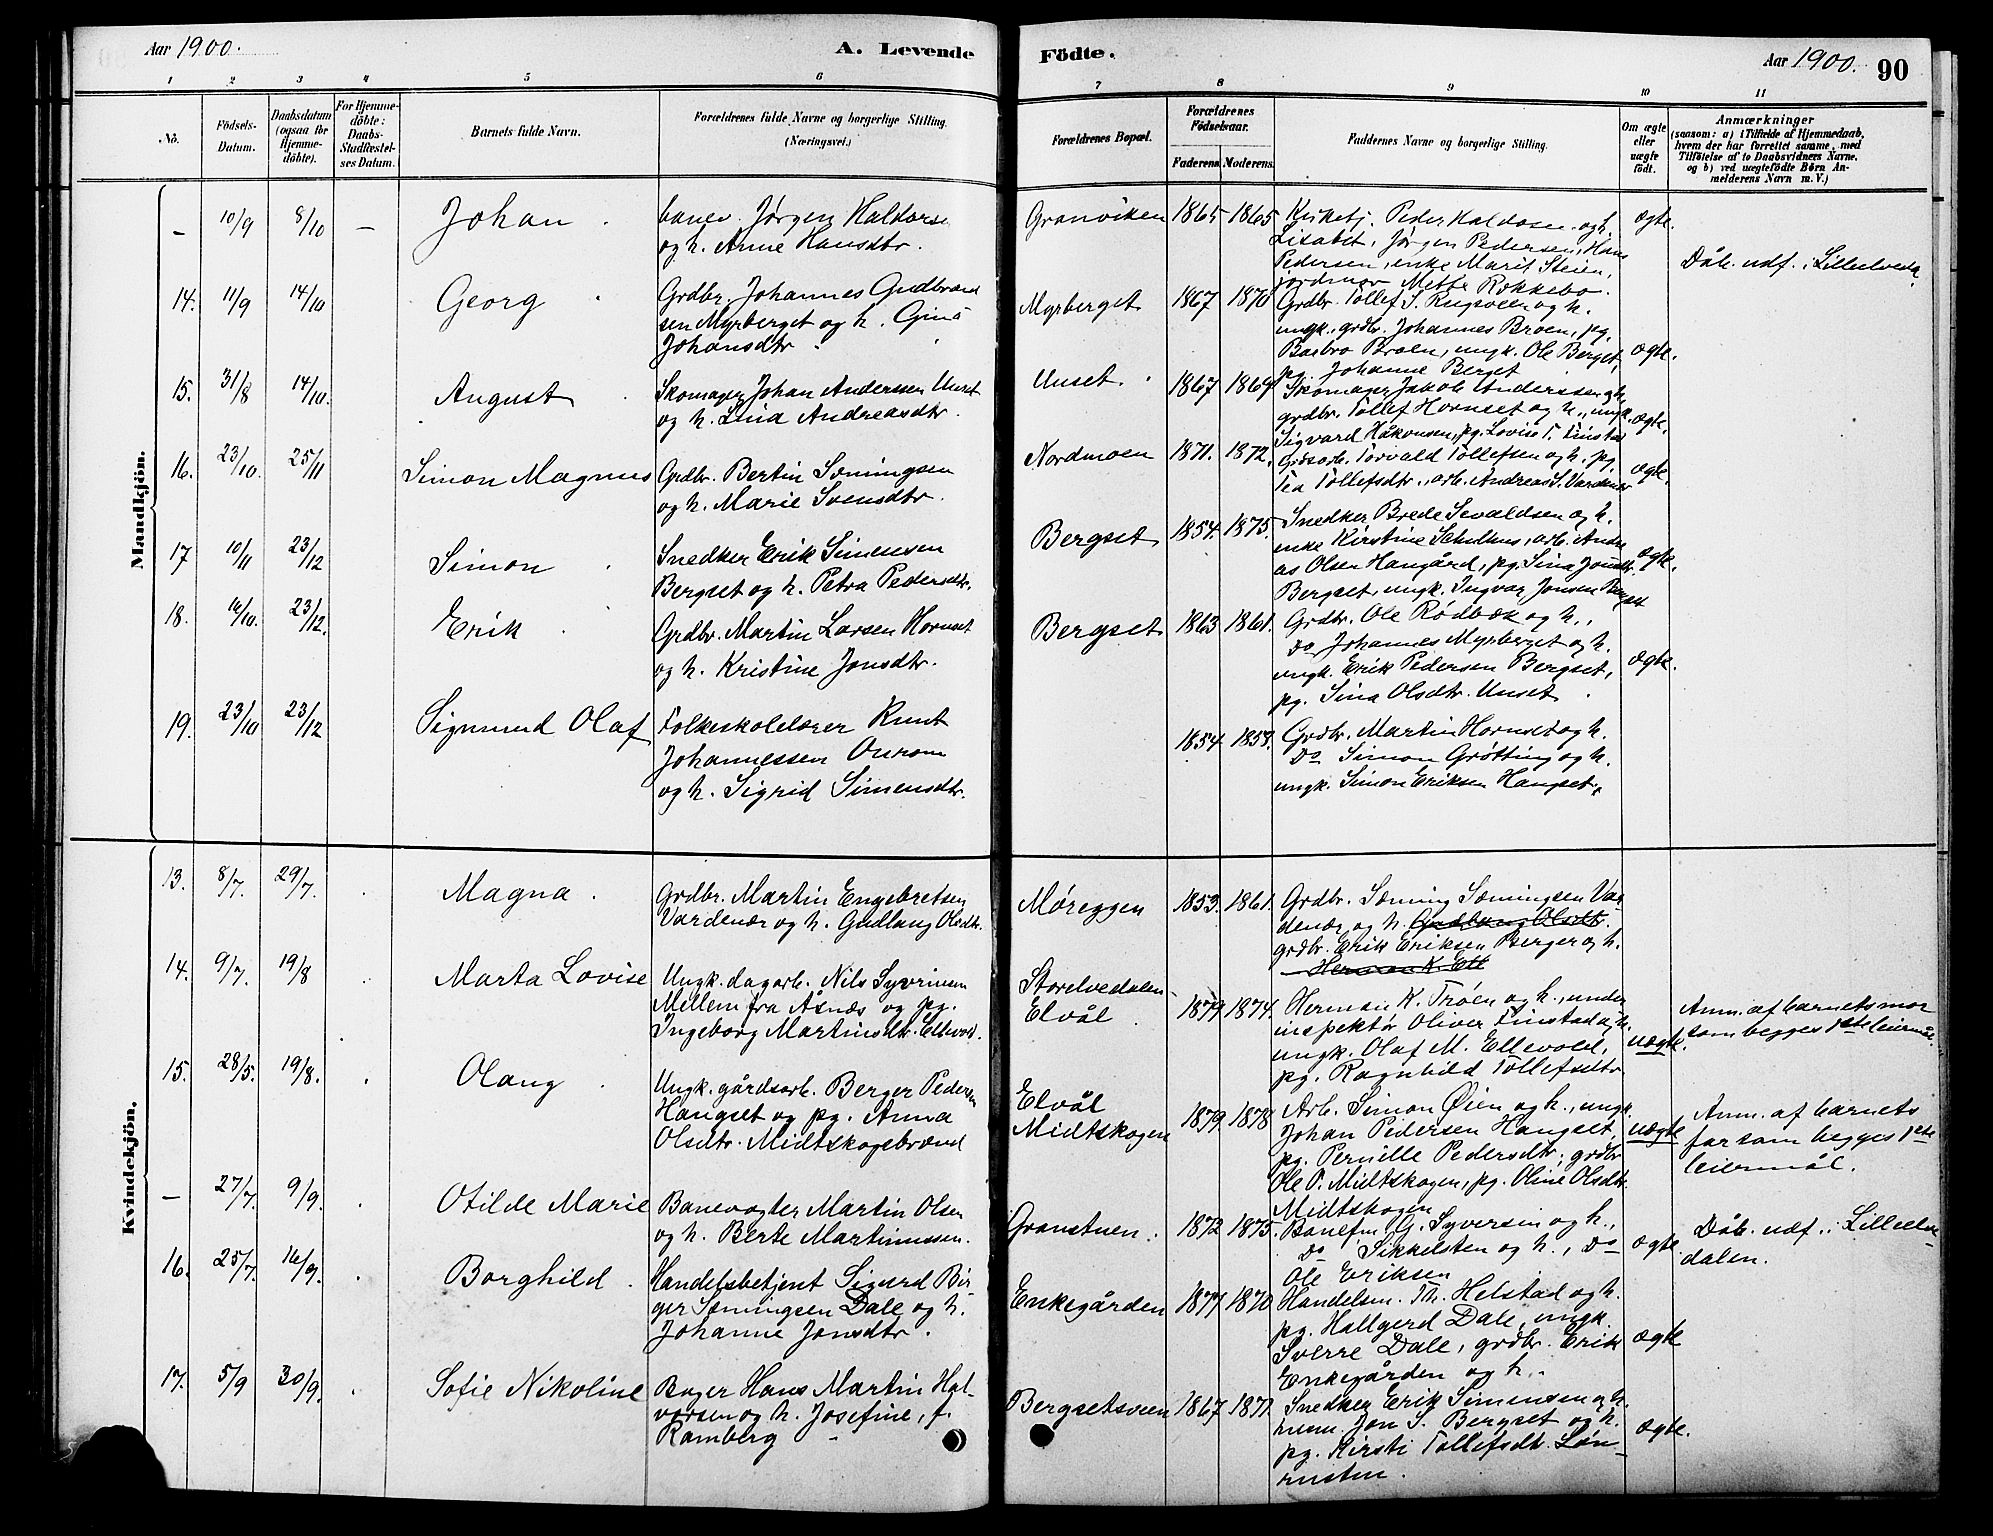 Aar 1900.
A. Levende
Födte.
Aar 1900.
90
1 2 3 4 5 6 7 8 9 10 11
No.
Födsels-
Datum.
Daabsdatum
(ogsaa for
Hjemme-
döbte).
For Hjemme-
döbte:
Daabs-
Stadfæstel-
ses Datum.
Barnets fulde Navn.
Forældrenes fulde Navne og borgerlige Stilling.
(Næringsvei.)
Forældrenes Bopæl.
Forældrenes
Födselsaar.
Faderens. Moderens.
Faddernes Navne og borgerlige Stilling.
Om ægte
eller
uægte
födt.
Anmærkninger
(saasom: a) i Tilfælde af Hjemmedaab,
hvem der har forrettet samme, med
Tilföielse af to Daabsvidners Navne,
og b) ved uægtefödte Börn An-
melderens Navn m. V.)
Mandkjön.
— 10/9 8/10 — Johan
banev. Jørgen Haldorse
og h. Anne Hansdtr.
Granviken 1865 1865
Kirketj. Peder Haldosen og h.
Lisabet, Jørgen Pedersen, Hans
Pedersen, enke Marit Steien,
jordmor Mette Rokkebo.
ægte.
Dåb. udf. i Lilleelveda
14. 11/9 14/10 Georg
Grdbr. Johannes Gudbrand
sen Myrberget og h. Gina
Johansdtr
Myrberget 1867 1870
Grdbr. Tollef S. Rugsveen og h.
ungk. grdbr. Johannes Broen, pg.
Barbro Broen, ungk. Ole Berget,
pg. Johanne Berget
ægte.
15. 31/8 14/10. August
Skomager Johan Anderssen Unset
og h. Lina Andreasdtr.
Unset. 1867 1869
Skomager Jakob Anderssen og h,
grdbr. Tollef Hornset og h., ungk.
Sigvard Håkonsen, pg. Lovise T. Finstad
ægte.
16. 23/10. 25/11 Simon Magnus
Grdbr. Bertin Sæmingsen
og h. Marie Svensdtr.
Nordmoen 1871. 1872.
Grdsarb. Torvald Tollefsen og h. pg.
Tea Tollefsdtr., arb. Andreas S. Vardenær
ægte.
17 10/11 23/12 Simon
Snedker Erik Simensen
Bergset og h. Petra Pedersdtr.
Bergset 1854. 1875.
Snedker Brede Sevaldsen og h.
enke Kirstine Schulhus, arb. Andre
as Olsen Hangård, pg. Sina Jonsdtr.
Bergset, ungk. Ingvar Jonsen Bergset
ægte.
18. 14/10. 23/12. Erik
Grdbr. Martin Larsen Hornset
og h. Kristine Jonsdtr.
Bergset 1863 1861.
Grdbr. Ole Rødbæk og h.,
Do Johannes Myrberget og h.
ungk. Erik Pedersen Bergset,
pg. Sina Olsdtr. Unset
ægte.
19. 23/10 23/12 Sigmund Olaf
Folkeskolelærer Knut
Johannessen Ourom
og h. Sigrid Simensdtr.
1854 1858.
Grdbr. Martin Hornset og h.
Do Simon Grøtting og h.
ungk. Simon Eriksen Hangset.
Kvindekjön.
13. 8/7. 29/7. Magna
Grdbr. Martin Engebretsen
Vardenær og h. Gudlaug Olsdtr.
Møreggen 1853. 1861.
Grdbr. Sæming Sæmingsen Var
denær og h. Gudlaug Olsdtr.
grdbr. Erik Eriksen Berger og h.
Herman K. Ell
14. 9/7. 19/8 Marta Lovise
Ungk. dagarb. Nils Syvrinsen
Mellem fra Åsnæs og pg.
Ingeborg Martinsdtr. Ellevol.
Storelvedalen
Elvål 1879 1874.
Herman K. Trøen og h., under
inspektør Oliver Finstad og h.
ungk. Olaf M. Ellevold,
pg. Ragnhild Tollefsdtr
uægte.
Anm. af barnets mor
som begges 1ste leiermål.
15. 28/5. 19/8. Olaug
Ungk. gårdsarb. Berger Pedersen
Hangset og pg. Anna
Olsdtr. Midtskogebrænd
Elvål
Midtskogen 1879. 1878
Arb. Simon Øien og h., ungk.
Johan Pedersen Hangset,
pg. Pernille Pedersdtr, grdbr
Ole P. Midtskogen, pg. Oline Olsdtr.
Midtskogen
uægte
Anm. af barnets
far som begges 1ste
leiermål.
— 27/7. 9/9. Otilde Marie
Banevogter Martin Olsen
og h. Berte Martinussen.
Granstuen. 1872 1875.
Banefm. G. Syversen og h.,
Do Sikkelsten og h., Do
Ole Eriksen
ægte
Dåb. udf. i Lilleelve
dalen.
16. 25/7. 16/9. Borghild
Handelsbetjent Sigurd Bir
ger Sæmingsen Dale og h.
Johanne Jonsdtr.
Enkegården 1877. 1870
Handelsm. Th. Helstad og h.
pg. Hallgerd Dale, ungk.
Sverre Dale, grdbr. Erik
Enkegården og h..
ægte
17. 5/9 30/9. Sofie Nikoline
Bager Hans Martin Hal
vorsen og h. Josefine, f.
Ramberg
Bergsetsveen 1867 1871.
Snedker Erik Simensen og h.
Jon S. Bergset og h.
pg. Kirsti Tollefsdtr. Løn
rusten.
ægte.